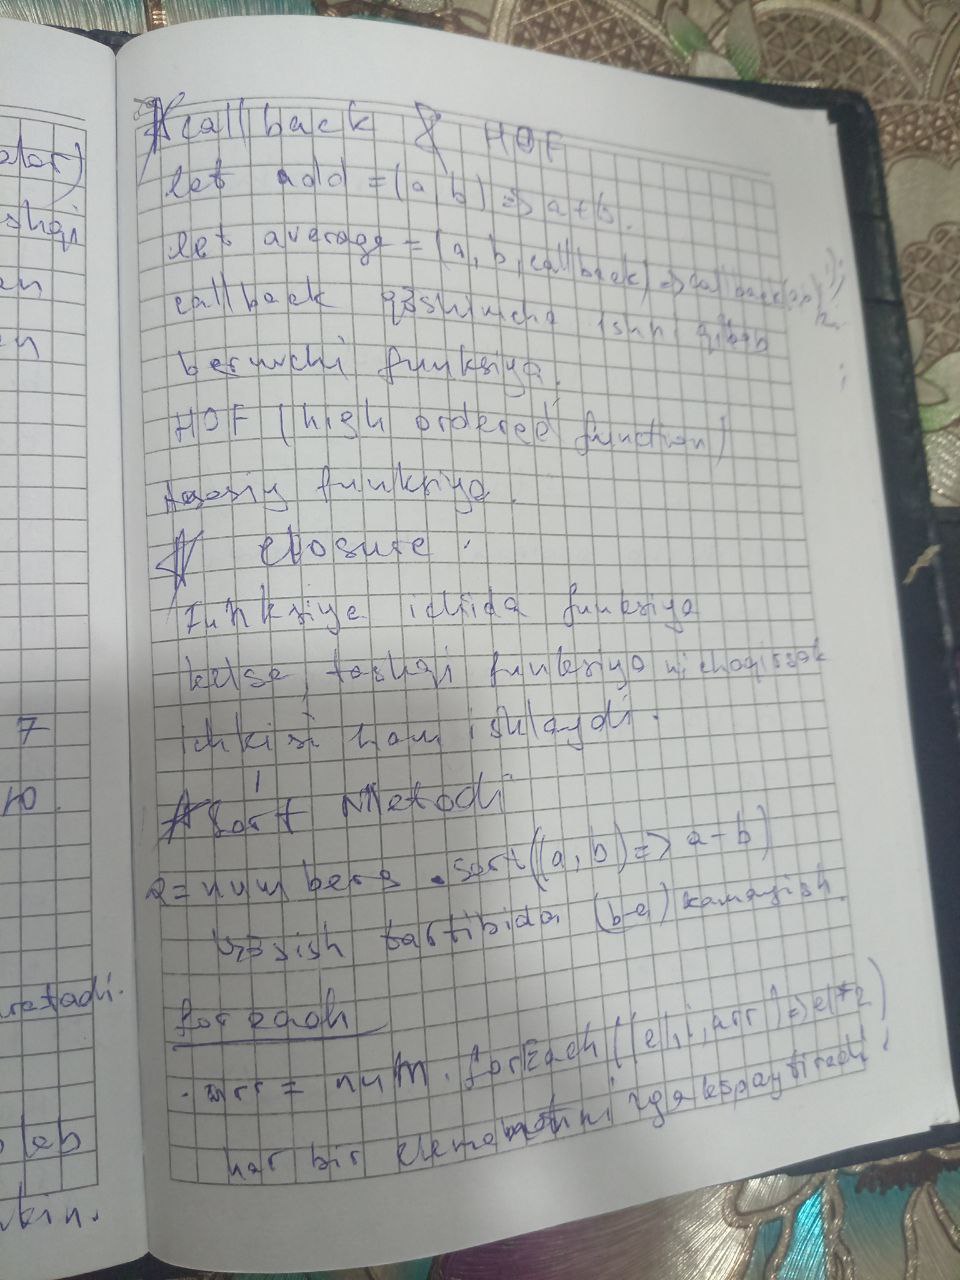 alar)
shqi
an
en
7
10
aretadi.
eb
kin.
# call back & HOF
let add = (a, b) => a + b.
let average = (a, b, callback) => callback(a, b)/2.
callback qo'shimcha ishni qilib
beruvchi funksiya.
HOF (high ordered function)
Asosiy funksiya.
# closure.
Funksiya ichida funksiya
kelse, tashqi funksiya ni chaqissak
ichkisi ham ishlaydi.
# Sort Metodi
a = numbers . sort((a, b) => a - b)
o'sish tartibida (b-a) kamayish.
for each
arr = num. forEach((el, i, arr) => el*2)
har bir elementni 2ga kopaytiradi